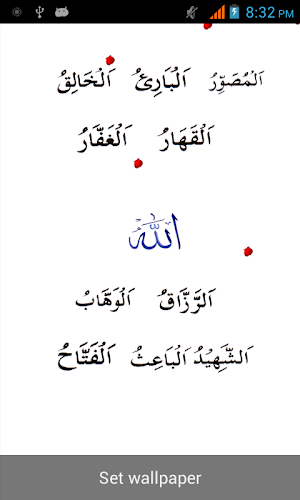 8:32 PM
اَلْمُصَوِّرُ اَلْبَارِئُ اَلْخَالِقُ
اَلْقَهَارُ اَلْغَفَّارُ
الله
اَلرَّزَّاقُ اَلْوَهَّابُ
اَلشَّهِيْدُ اَلْبَاعِثُ اَلْفَتَّاحُ
Set wallpaper